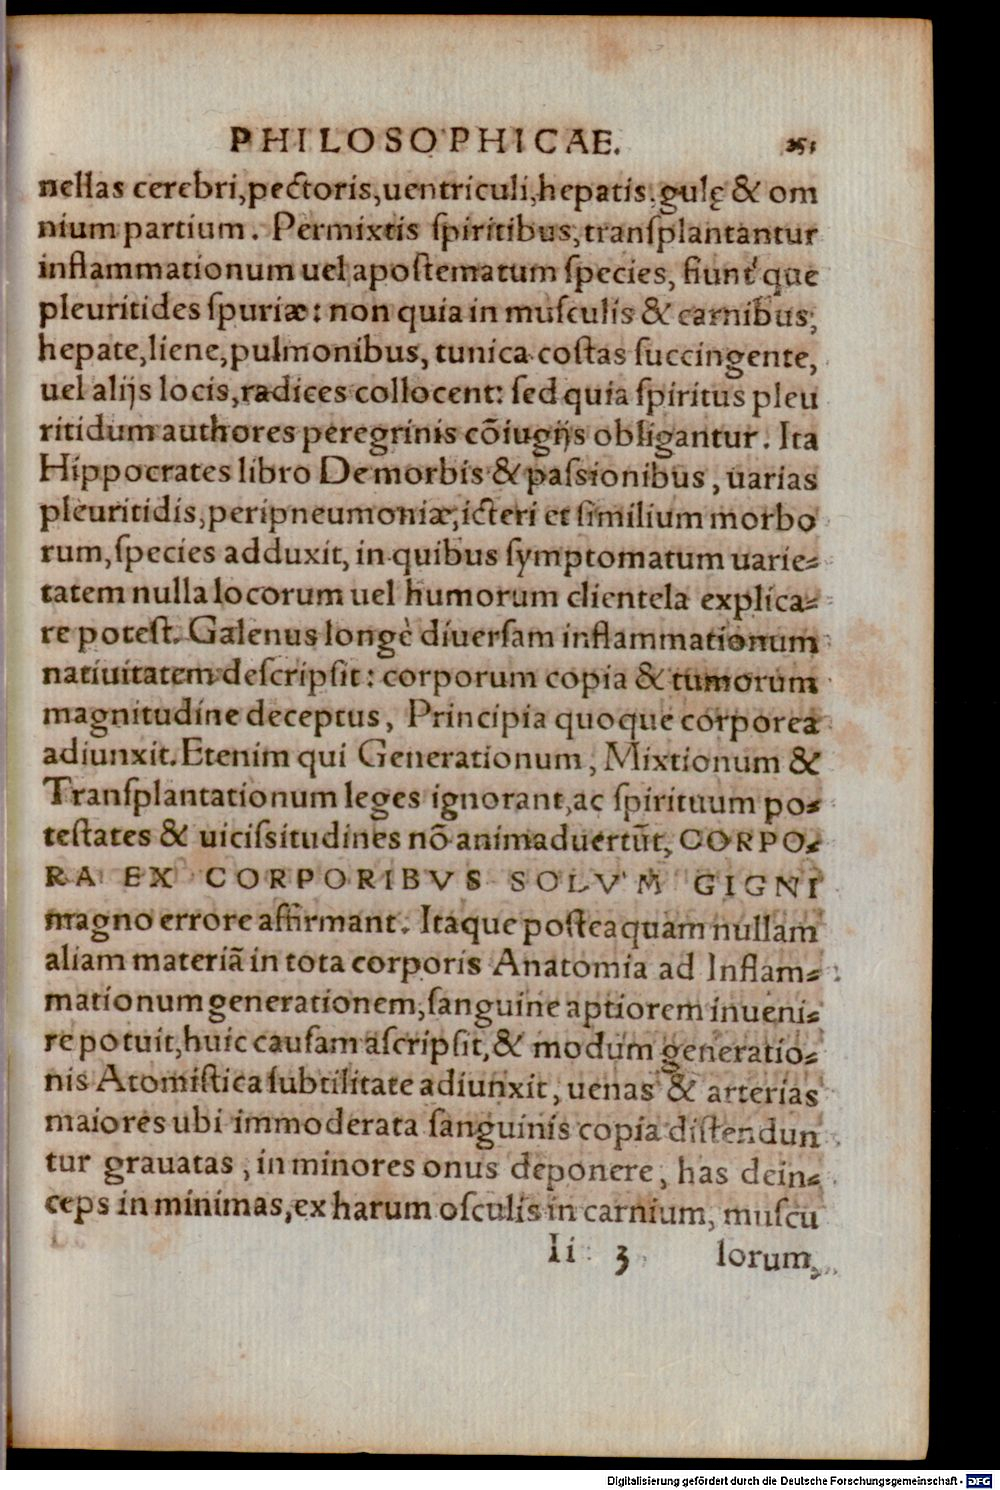 PHILOSOPHICAE. 251
nellas cerebri,pectoris,uentriculi,hepatis,gulę & om
nium partium. Permixtis ſpiritibus,transplantantur
inflammationum uel apoſtematum ſpecies, fiunt'que
pleuritides ſpuriæ: non quia in muſculis & carnibus,
hepate,liene,pulmonibus, tunica coſtas ſuccingente,
uel alijs locis,radices collocent: ſed quia ſpiritus pleu
ritidum authores peregrinis cōiugijs obligantur. Ita
Hippocrates libro De morbis & paſsionibus, uarias
pleuritidis,peripneumoniæ,icteri et ſimilium morbo
rum,ſpecies adduxit, in quibus ſymptomatum uarie-
tatem nulla locorum uel humorum clientela explica-
re poteſt. Galenus longè diuerſam inflammationum
natiuitatem deſcripſit: corporum copia & tumorum
magnitudine deceptus, Principia quoque corporea
adiunxit. Etenim qui Generationum, Mixtionum &
Transplantationum leges ignorant,ac ſpirituum po-
teſtates & uiciſsitudines nō animaduertūt, CORPO-
RA EX CORPORIBVS SOLVM GIGNI
magno errore affirmant. Itaque poſtea quam nullam
aliam materiā in tota corporis Anatomia ad Inflam-
mationum generationem,ſanguine aptiorem inueni-
re potuit,huic cauſam aſcripſit,& modum generatio-
nis Atomiſtica ſubtilitate adiunxit, uenas & arterias
maiores ubi immoderata ſanguinis copia diſtendun
tur grauatas, in minores onus deponere, has dein-
ceps in minimas,ex harum oſculis in carnium, muſcu
Ii 3 lorum,
Digitalisierung gefördert durch die Deutsche Forschungsgemeinschaft - DFG